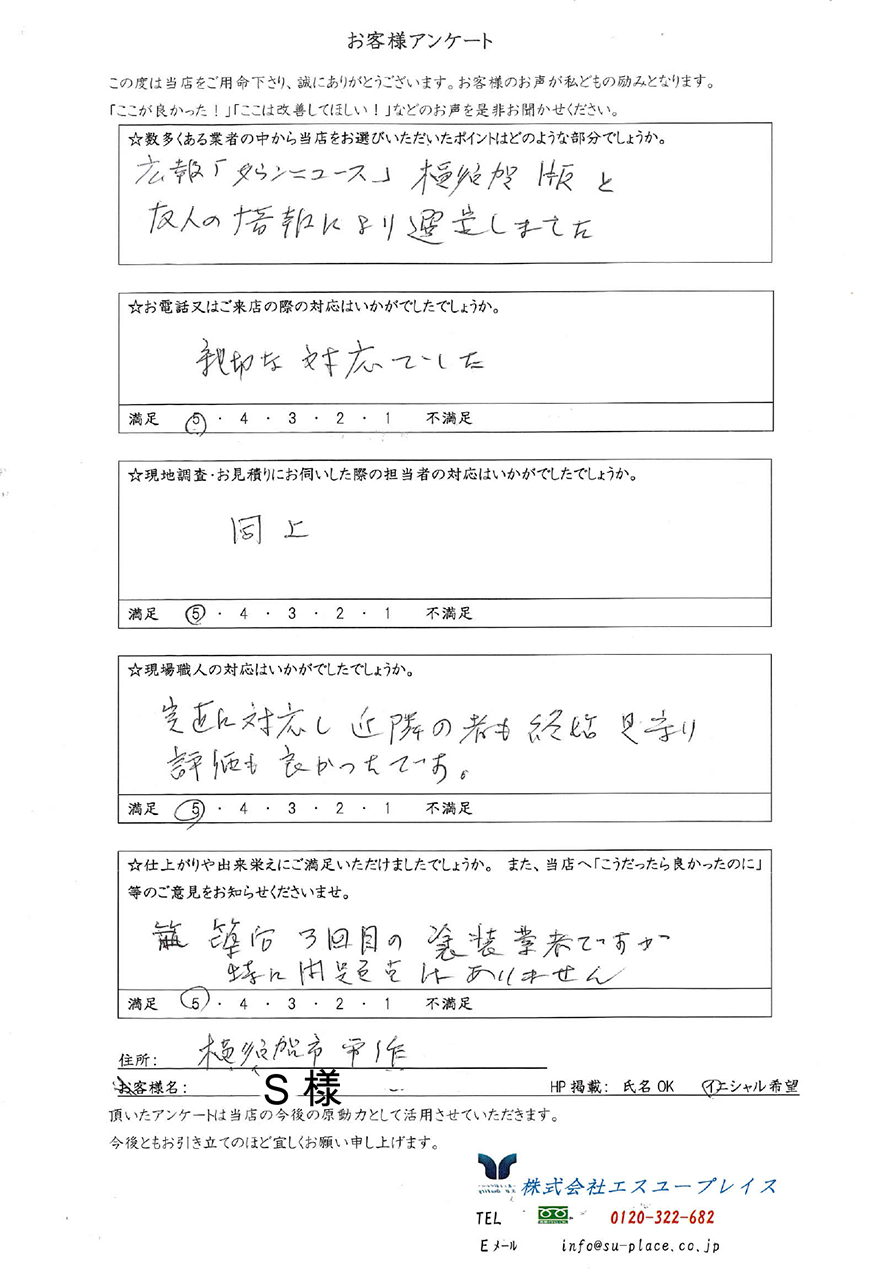 お客様アンケート
この度は当店をご用命下さり、誠にありがとうございます。お客様のお声が私どもの励みとなります。
「ここが良かった！」「ここは改善してほしい！」などのお声を是非お聞かせください。
☆数多くある業者の中から当店をお選びいただいたポイントはどのような部分でしょうか。
広報「タウンニュース」横須賀版と
友人の情報により選定しました
☆お電話又はご来店の際の対応はいかがでしたでしょうか。
親切な対応でした
満足 5 ・ 4 ・ 3 ・ 2 ・ 1 不満足
☆現地調査・お見積りにお伺いした際の担当者の対応はいかがでしたでしょうか。
同上
満足 5 ・ 4 ・ 3 ・ 2 ・ 1 不満足
☆現場職人の対応はいかがでしたでしょうか。
実直に対応し 近隣の者も 終始 見守り
評価も良かったです。
満足 5 ・ 4 ・ 3 ・ 2 ・ 1 不満足
☆仕上がりや出来栄えにご満足いただけましたでしょうか。 また、当店へ「こうだったら良かったのに」
等のご意見をお知らせくださいませ。
3回目の 塗装業者ですが
特に問題点はありません
満足 5 ・ 4 ・ 3 ・ 2 ・ 1 不満足
住所： 横須賀市平作
お客様名： S 様 HP掲載： 氏名OK イニシャル希望
頂いたアンケートは当店の今後の原動力として活用させていただきます。
今後ともお引き立てのほど宜しくお願い申し上げます。
株式会社エスユープレイス
TEL 0120-322-682
Eメール info@su-place.co.jp